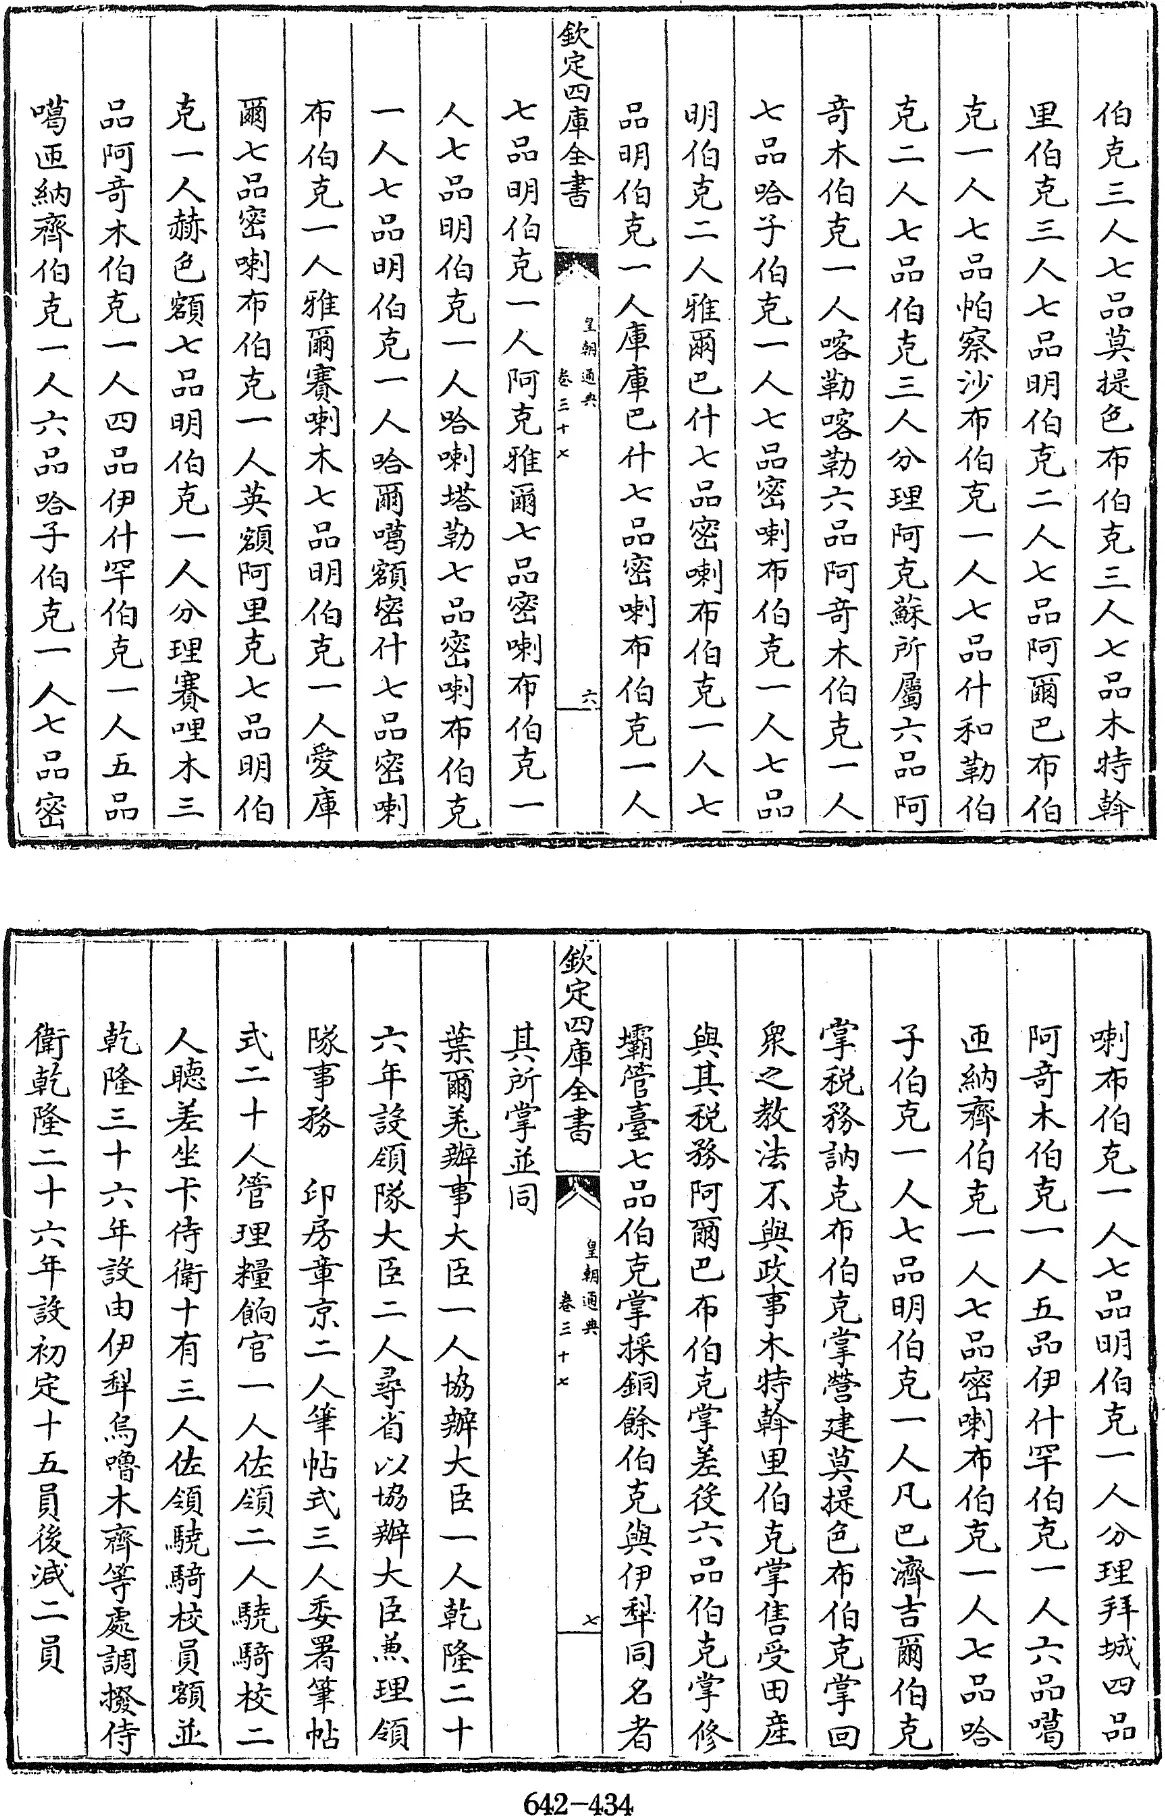 伯克三人七品莫提色布伯克三人七品木特斡
里伯克三人七品明伯克二人七品阿爾巴布伯
克一人七品帕察沙布伯克一人七品什和勒伯
克二人七品伯克三人分理阿克蘇所屬六品阿
奇木伯克一人喀勒喀勒六品阿奇木伯克一人
七品哈子伯克一人七品密喇布伯克一人七品
明伯克二人雅爾巴什七品密喇布伯克一人七
品明伯克一人庫庫巴什七品密喇布伯克一人
欽定四庫全書
皇朝通典
卷三十七
六
七品明伯克一人阿克雅爾七品密喇布伯克一
人七品明伯克一人哈喇塔勒七品密喇布伯克
一人七品明伯克一人哈爾噶額密什七品密喇
布伯克一人雅爾賽喇木七品明伯克一人愛庫
爾七品密喇布伯克一人英額阿里克七品明伯
克一人赫色額七品明伯克一人分理賽哩木三
品阿奇木伯克一人四品伊什罕伯克一人五品
噶匝納齊伯克一人六品哈子伯克一人七品密
喇布伯克一人七品明伯克一人分理拜城四品
阿奇木伯克一人五品伊什罕伯克一人六品噶
匝納齊伯克一人七品密喇布伯克一人七品哈
子伯克一人七品明伯克一人凡巴濟吉爾伯克
掌稅務訥克布伯克掌營建莫提色布伯克掌回
衆之教法不與政事木特斡里伯克掌售受田產
與其稅務阿爾巴布伯克掌差役六品伯克掌修
壩管臺七品伯克掌採銅餘伯克與伊犂同名者
欽定四庫全書
皇朝通典
卷三十七
七
其所掌並同
葉爾羌辦事大臣一人協辦大臣一人乾隆二十
六年設領隊大臣二人尋省以協辦大臣兼理領
隊事務　印房章京二人筆帖式三人委署筆帖
式二十人管理糧餉官一人佐領二人驍騎校二
人聽差坐卡侍衛十有三人佐領驍騎校員額並
乾隆三十六年設由伊犂烏嚕木齊等處調撥侍
衛乾隆二十六年設初定十五員後減二員
642-434